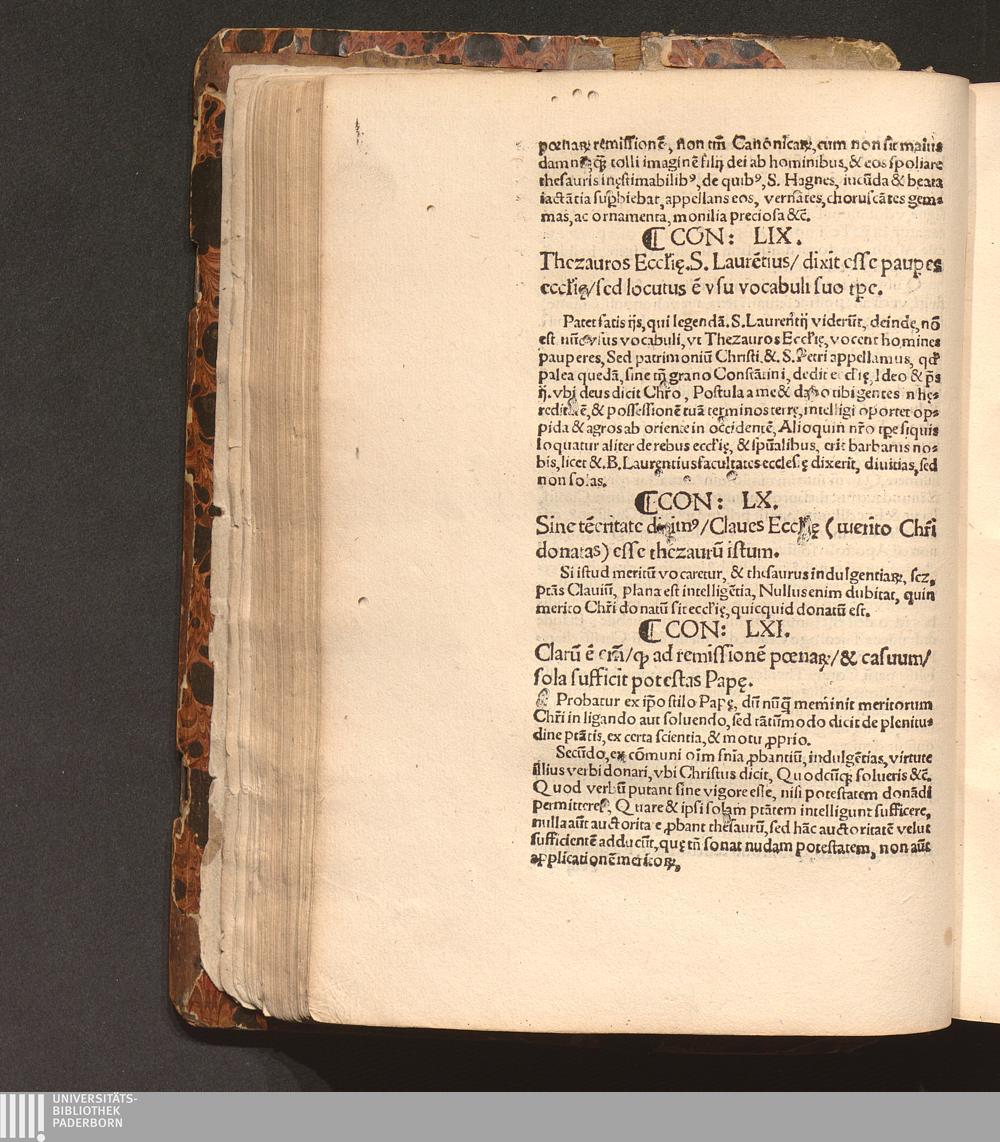 pœnaꝝ remissionē, non tm̄ Canonicaꝝ, cum non sit maius
damnū, qꝫ tolli imaginē filij dei ab hominibus, & eos spoliare
thesauris inęstimabilibꝰ, de quibꝰ, S. Hagnes, iucūda & beata
iactātia supbiebat, appellans eos, vernātes, choruscātes gem⸗
mas, ac ornamenta, monilia preciosa &c̄.
¶ CON: LIX.
Thezauros Eccl'ię. S. Laurētius/ dixit esse paupes
eccl'ię/ sed locutus ē vsu vocabuli suo tpe.
Patet satis ijs, qui legendā. S. Laurentij viderūt, deinde, nō
est nūc vsus vocabuli, vt Thezauros Eccl'ię, vocent homines
pauperes, Sed patrimoniū Christi. &. S. Petri appellamus, qd'
palea quedā, sine grano Constātini, dedit eccl'ię, Ideo & ps̄
ij. vbi deus dicit Chr̄o, Postula a me & dabo tibi gentes hę⸗
reditatē, & possessionē tuā terminos terrę, intelligi oportet op⸗
pida & agros ab oriente in occidentē, Alioquin nr̄o tpe siquis
loquatur aliter de rebus eccl'ię, & spūalibus, erit barbarus no⸗
bis, licet &. B. Laurentius facultates ecclesię dixerit, diuitias, sed
non solas.
¶ CON: LX.
Sine tēeritate dicimꝰ/ Claues Eccl'ię (merito Chr̄i
donatas) esse thezaurū istum.
Si istud meritū vocaretur, & thesaurus indulgentiaꝝ, scz,
ptās Clauiū, plana est intelligētia, Nullus enim dubitat, quin
merito Chr̄i donatū sit eccl'ię, quicquid donatū est.
¶ CON: LXI.
Clarū ē em̄/ ꝙ ad remissionē pœnaꝝ/ & casuum/
sola sufficit potestas Papę.
Probatur ex ip̄o stilo Papę, dū nūqꝫ meminit meritorum
Chr̄i in ligando aut soluendo, sed tātūmodo dicit de plenitu⸗
dine ptātis, ex certa scientia, & motu ꝓprio.
Secūdo, ex cōmuni oīm snīa ꝓbantiū, indulgētias, virtute
illius verbi donari, vbi Christus dicit, Quodcūqꝫ solueris &c̄.
Quod verbū putant sine vigore esse, nisi potestatem donādi
permitteret, Quare & ipsi solam ptātem intelligunt sufficere,
nulla aūt auctoritate ꝓbant thesaurū, sed hāc auctoritatē velut
sufficientē adducūt, quę tn̄ sonat nudam potestatem, non aūt
applicationē meritoꝝ,
UNIVERSITÄTS-
BIBLIOTHEK
PADERBORN